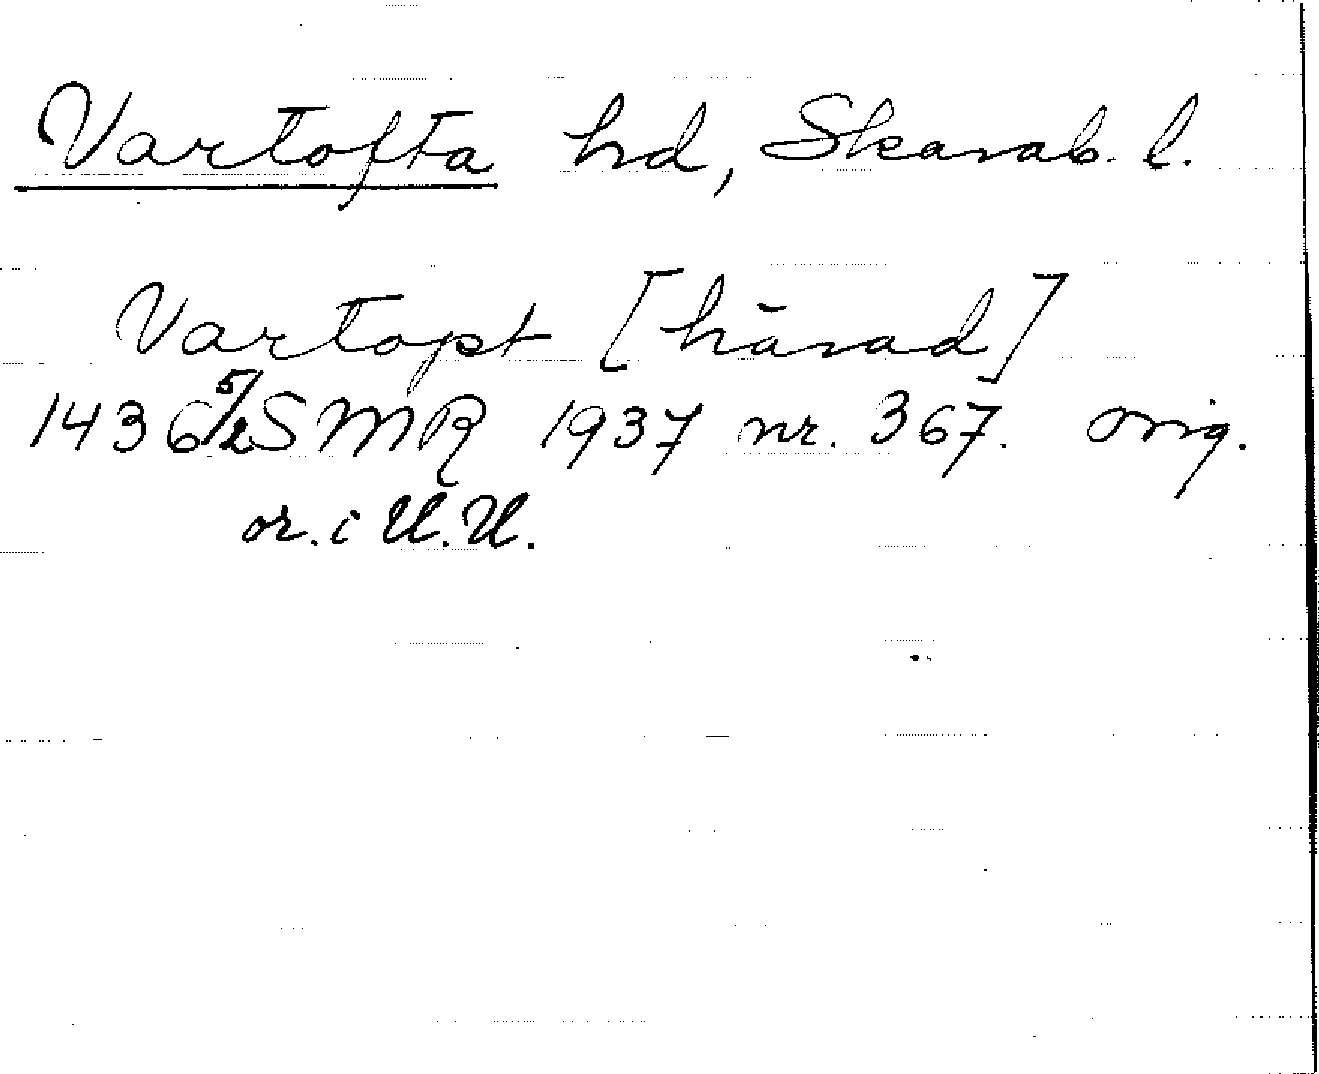 Vartofta hd, Skarab. l.
Vartopt [härad]
1436 5/2 SMR 1937 nr. 367. orig.
or. i U.U.